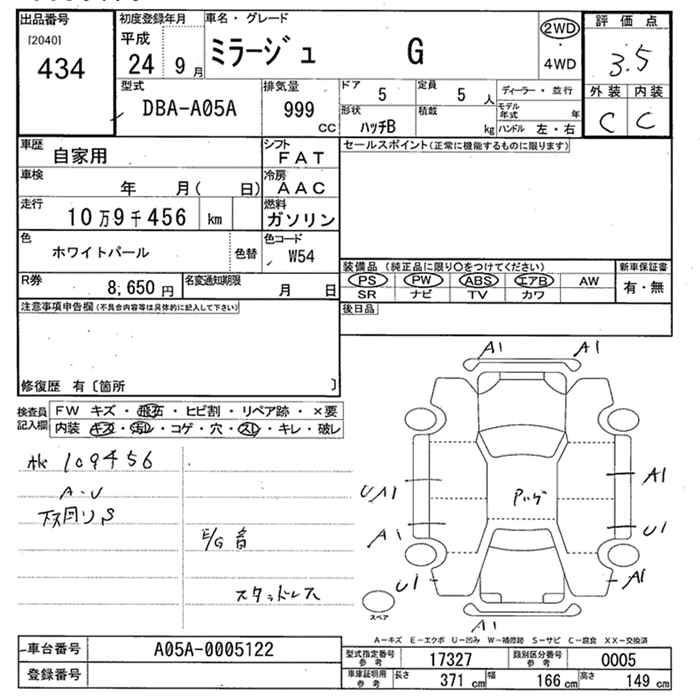 出品番号
[2040]
434
初度登録年月
平成
24年 9月
車名・グレード
ミラージュ G
2WD
・
4WD
評価点
3.5
外装 内装
C C
型式
DBA-A05A
排気量
999
CC
ドア
5
定員
5 人
形状
ハッチB
積載
kg
ディーラー・並行
モデル年式 年
ハンドル 左・右
車歴
自家用
シフト
FAT
車検
年 月( 日)
冷房
AAC
走行
10万9千456 km
燃料
ガソリン
色
ホワイトパール
色替
色コード
W54
R券
8,650円
名変通知期限
月 日
セールスポイント(正常に機能するものに限ります)
装備品 (純正品に限り○をつけてください)
新車保証書
PS PW ABS エアB AW
SR ナビ TV カワ
有・無
後日品
注意事項申告欄(不具合内容等は具体的に記入して下さい)
修復歴 有〔箇所 〕
検査員記入欄
FW キズ・飛石・ヒビ割・リペア跡・×要
内装 キズ・汚レ・コゲ・穴・スレ・キレ・破レ
109456
A・U
下廻りS
E/G 音
スタッドレス
A1 A1
UA1
A1
A1
U1
U1
A1
A1
スペア
A-キズ E-エクボ U-凹み W-補修跡 S-サビ C-腐食 XX-交換済
車台番号
A05A-0005122
登録番号
型式指定番号
参考
17327
類別区分番号
参考
0005
車庫証明用
参考
長さ
371 cm
幅
166 cm
高さ
149 cm